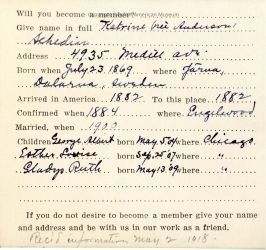 Will you become a member?
Give name in full Katrine (née Anderson)
Schedin
Address 4935. Medill ave.
Born when July 23. 1869 where Järna,
Dalarna, Sweden
Arrived in America 1882 To this place 1882
Confirmed when 1884 where Englewood
Married, when 1900
Children George Albert born May 5, 04 where Chicago
Esther Louise born Sep. 25. 07 where "
Gladys Ruth born May 13. 09 where "
If you do not desire to become a member give your name
and address and be with us in our work as a friend.
Rec'd information May 2 1918.